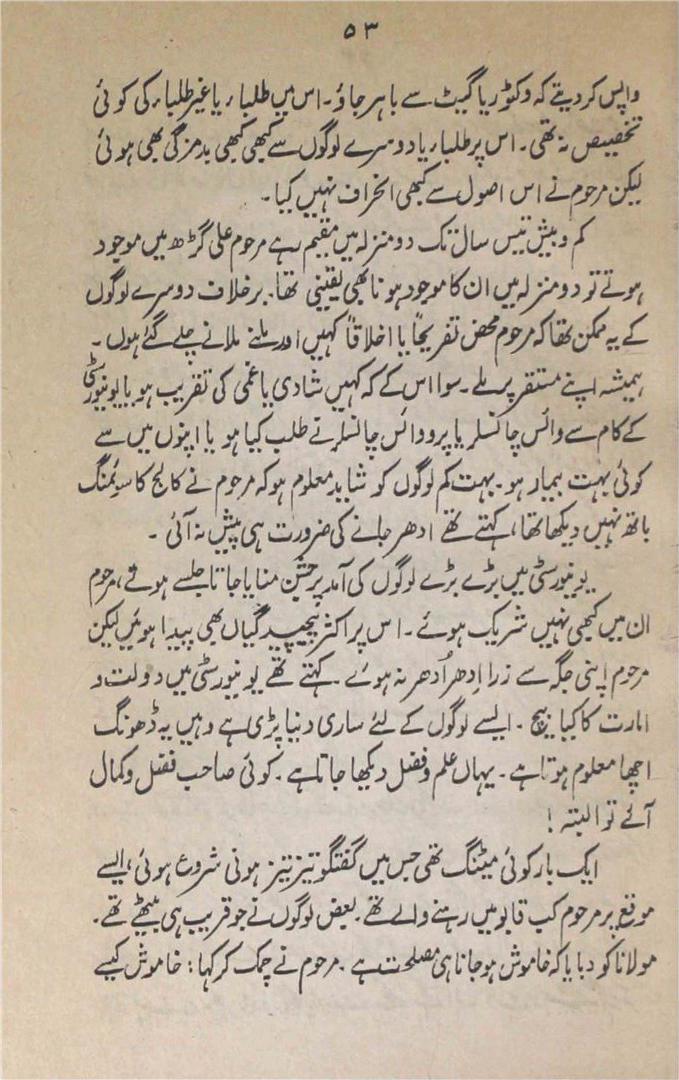 ۵۳
واپس کر دیتے کہ وکٹوریا گیٹ سے باہر جاؤ۔ اس میں طلباء یا غیر طلباء کی کوئی
تخصیص نہ تھی۔ اس پر طلباء یا دوسرے لوگوں سے کبھی کبھی بدمزگی بھی ہوئی
لیکن مرحوم نے اس اصول سے کبھی انحراف نہیں کیا۔
کم و بیش تیس سال تک دو منزلہ میں مقیم رہے مرحوم علی گڑھ میں موجود
ہوتے تو دو منزلہ میں ان کا موجود ہونا بھی یقینی تھا۔ برخلاف دوسرے لوگوں
کے یہ ممکن تھا کہ مرحوم محض تفریحاً یا اخلاقاً کہیں اور ملنے ملانے چلے گئے ہوں۔
ہمیشہ اپنے مستقر پر ملے۔ سوا اس کے کہ کہیں شادی یا غمی کی تقریب ہو یا یونیورسٹی
کے کام سے وائس چانسلر یا پرو وائس چانسلر نے طلب کیا ہو یا اپنوں میں سے
کوئی بہت بیمار ہو۔ بہت کم لوگوں کو شاید معلوم ہو کہ مرحوم نے کالج کا سوئمنگ
باتھ نہیں دیکھا تھا، کہتے تھے ادھر جانے کی ضرورت ہی پیش نہ آئی۔
یونیورسٹی میں بڑے بڑے لوگوں کی آمد پر جشن منایا جاتا جلسے ہوتے، مرحوم
ان میں کبھی نہیں شریک ہوئے۔ اس پر اکثر پیچیدگیاں بھی پیدا ہوئیں لیکن
مرحوم اپنی جگہ سے ذرا اِدھر اُدھر نہ ہوئے۔ کہتے تھے یونیورسٹی میں دولت و
امارت کا کیا بیچ۔ ایسے لوگوں کے لئے ساری دنیا پڑی ہے وہیں یہ ڈھونگ
اچھا معلوم ہوتا ہے۔ یہاں علم و فضل دیکھا جاتا ہے۔ کوئی صاحب فضل و کمال
آئے تو البتہ!
ایک بار کوئی میٹنگ تھی جس میں گفتگو تیز تیز ہونی شروع ہوئی، ایسے
موقع پر مرحوم کب قابو میں رہنے والے تھے۔ بعض لوگوں نے جو قریب ہی بیٹھے تھے۔
مولانا کو دبایا کہ خاموش ہو جانا ہی مصلحت ہے۔ مرحوم نے چمک کر کہا: خاموش کیسے